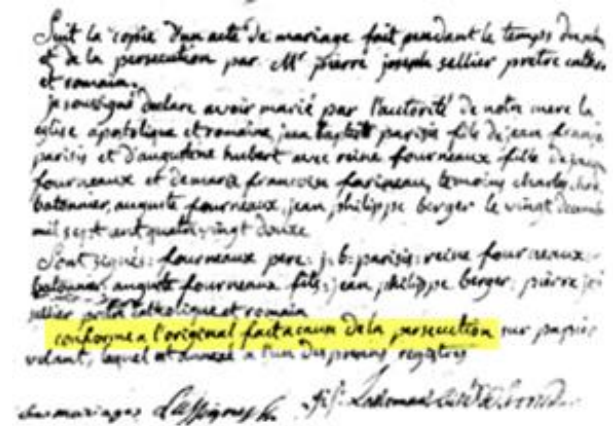 Suit la copie d'un acte de mariage fait pendant le temps du
et de la persecution par Mr pierre joseph sellier pretre catho
et romain.
je soussigné declare avoir marié par l'autorité de notre mere la
eglise apostolique et romaine jean baptiste parisis fils de jean franç
parisis et d'augustene hubert avec reine fourneaux fille de jacq
fourneaux et de marie francoise farineau, temoins charles
batonnier, auguste fourneaux, jean philippe berger le vingt decemb
mil sept cent quatre vingt douze
Sont signés: fourneaux pere: j: b: parisis: reine fourneaux:
batonnier: auguste fourneaux fils: jean philippe berger: pierre jo
sellier pretre catholique et romain
conforme a l'original fait a cause de la persecution sur papier
volant, lequel est annexé a l'un des presens registres
des mariages